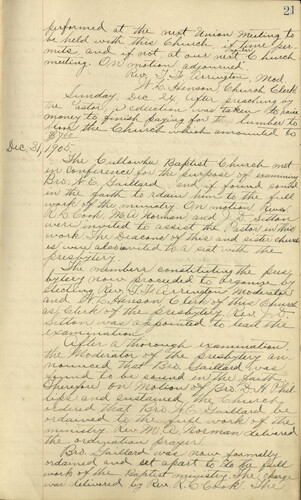 21
performed at the next Union Meeting to
be held with this Church, if time per-
mits and if not at our next Church
meeting. On motion adjourned.
Rev. T. F. Arrington, Mod.
W. C. Hanson, Church Clerk
Sunday, Dec. 24, after preaching by
the Pastor, a collection was taken to raise
money to finish paying for the lumber to
the Church which amounted to
Dec. 31, 1905.
The Cullowhee Baptist Church met
in Conference for the purpose of examining
Bro. A. C. Gaillard and if found sound
in the faith to odain him to the full
work of the ministry. On motion, Revs.
R. L. Cook, M. A. Norman and J. D. Sitton
were invited to assist the Pastor in this
work. The Deacons of this and sister church-
es were also invited to a seat with the
presbytery.
The members constituting the pres-
bytery now proceeded to organize by
electing Rev. T. F. Arrington Moderator
and W. C. Hanson Clerk of this Church
as Clerk of the presbytery. Rev. J. D.
Sitton was appointed to lead the
examination.
After a thorough examination
the Moderator of the presbytery an-
nounced that Bro. Gaillard was
found to be sound in the faith.
Therefore on Motion of Bro. Phil-
lips and sustained, the Church
ordered that Bro. A. C. Gaillard be
ordained to the full work of the
ministry. Rev. M. A. Norman delivered
the ordination prayer.
Bro. Gaillard was now formally
ordained and set apart to do the full
work of the Baptist ministry. The charge
was delivered by Rev. R. L. Cook. The